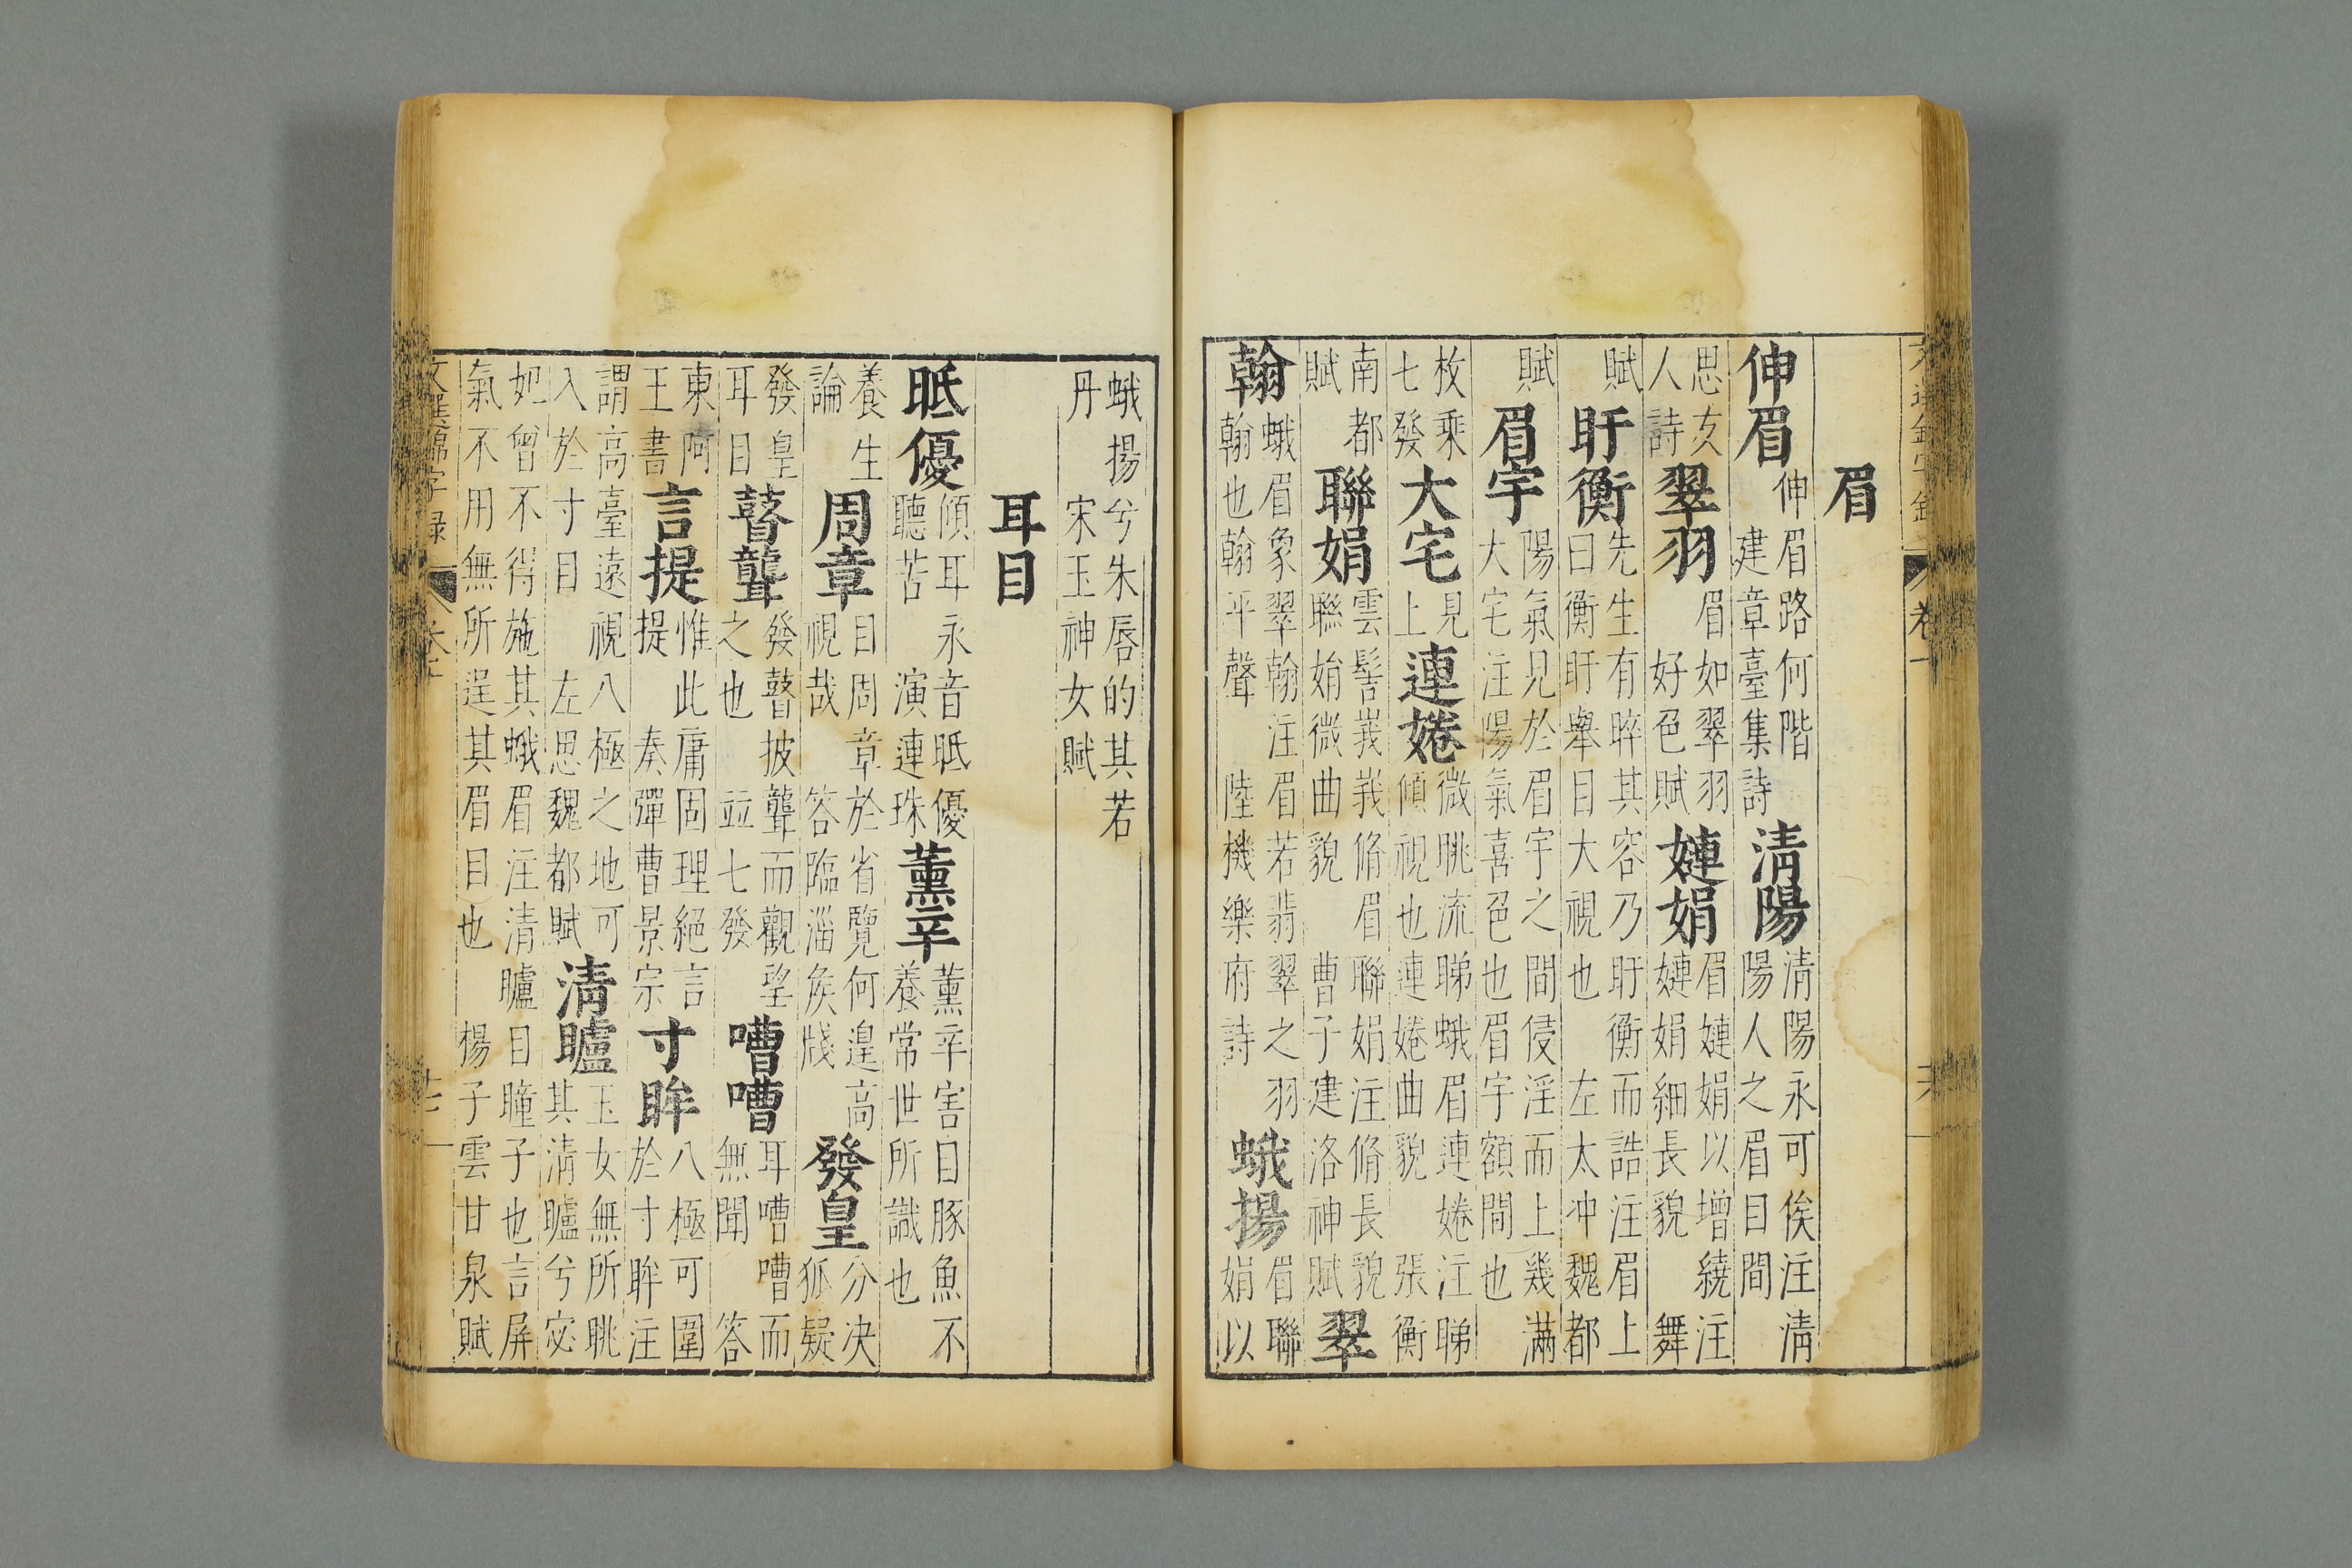 眉
伸眉
伸眉路何階
建章臺集詩
清陽
清陽永可俟注清
陽人之眉目間
思友
人詩
翠羽
眉如翠羽
好色賦
㜻娟
眉㜻娟以增繞注
㜻娟細長貌 舞
賦
盱衡
先生有睟其容乃盱衡而誥注眉上
曰衡盱舉目大視也 左太冲魏都
賦
眉宇
陽氣見於眉宇之間侵淫而上幾滿
大宅注陽氣喜色也眉宇額間也
枚乘
七發
大宅
見
上
連婘
微眺流睇蛾眉連婘注睇
傾視也連婘曲貌 張衡
南都
賦
聯娟
雲髻峩峩脩眉聯娟注脩長貌
聯娟微曲貌 曹子建洛神賦
翠
翰
蛾眉象翠翰注眉若翡翠之羽
翰也翰平聲 陸機樂府詩
蛾揚
眉聯
娟以
蛾揚兮朱唇的其若
丹 宋玉神女賦
耳目
眡優
傾耳永音眡優
聽苦 演連珠
薰辛
薰辛害目豚魚不
養常世所識也
養生
論
周章
目周章於省覽何遑高
視哉 答臨淄矦牋
發皇
分决
狐疑
發皇
耳目
瞽聾
發瞽披聾而觀望
之也 並七發
嘈嘈
耳嘈嘈而
無聞 答
東阿
王書
言提
惟此庸固理絕言
提 奏彈曹景宗
寸眸
八極可圍
於寸眸注
謂高臺遠視八極之地可
入於寸目 左思魏都賦
清矑
玉女無所眺
其清矑兮宓
妃曾不得施其蛾眉注清矑目瞳子也言屏
氣不用無所逞其眉目也 楊子雲甘泉賦
文選錦字錄